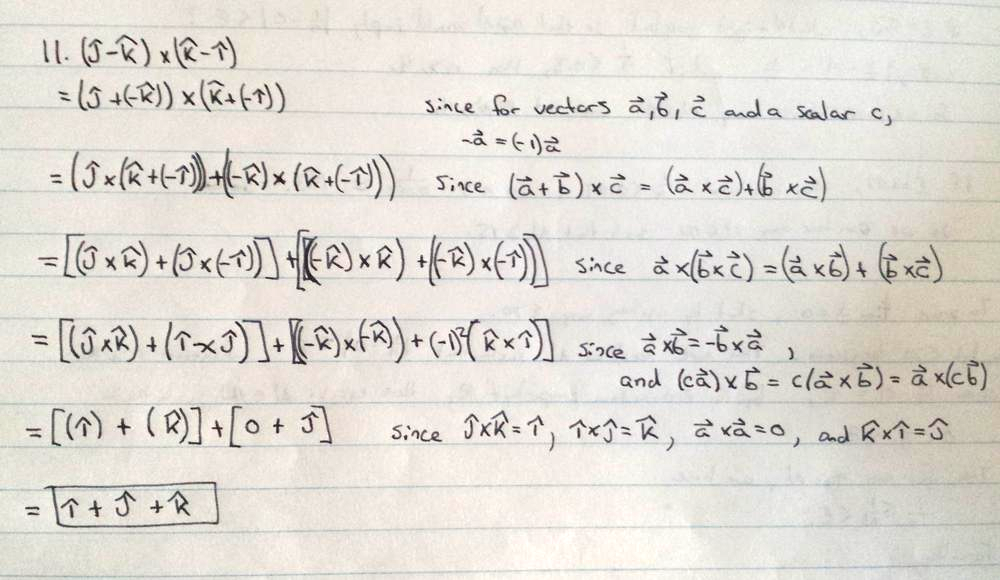 11. (ĵ-k̂) × (k̂-î)
= (ĵ +(-k̂)) × (k̂+(-î)) since for vectors a⃗, b⃗, c⃗ and a scalar c,
-a⃗ = (-1)a⃗
= (ĵ×(k̂+(-î))+((-k̂)×(k̂+(-î))) since (a⃗+b⃗)×c⃗ = (a⃗×c⃗)+(b⃗×c⃗)
= [(ĵ×k̂)+(ĵ×(-î))]+[((-k̂)×k̂)+((-k̂)×(-î))] since a⃗×(b⃗×c⃗) = (a⃗×b⃗)+(b⃗×c⃗)
= [(ĵ×k̂)+(î×ĵ)]+[(-k̂)×(-k̂)+(-1)²(k̂×î)] since a⃗×b⃗=-b⃗×a⃗,
and (ca⃗)×b⃗ = c(a⃗×b⃗) = a⃗×(cb⃗)
= [(î) + (k̂)]+[0 + ĵ] since ĵ×k̂=î, î×ĵ=k̂, a⃗×a⃗=0, and k̂×î=ĵ
= î + ĵ + k̂